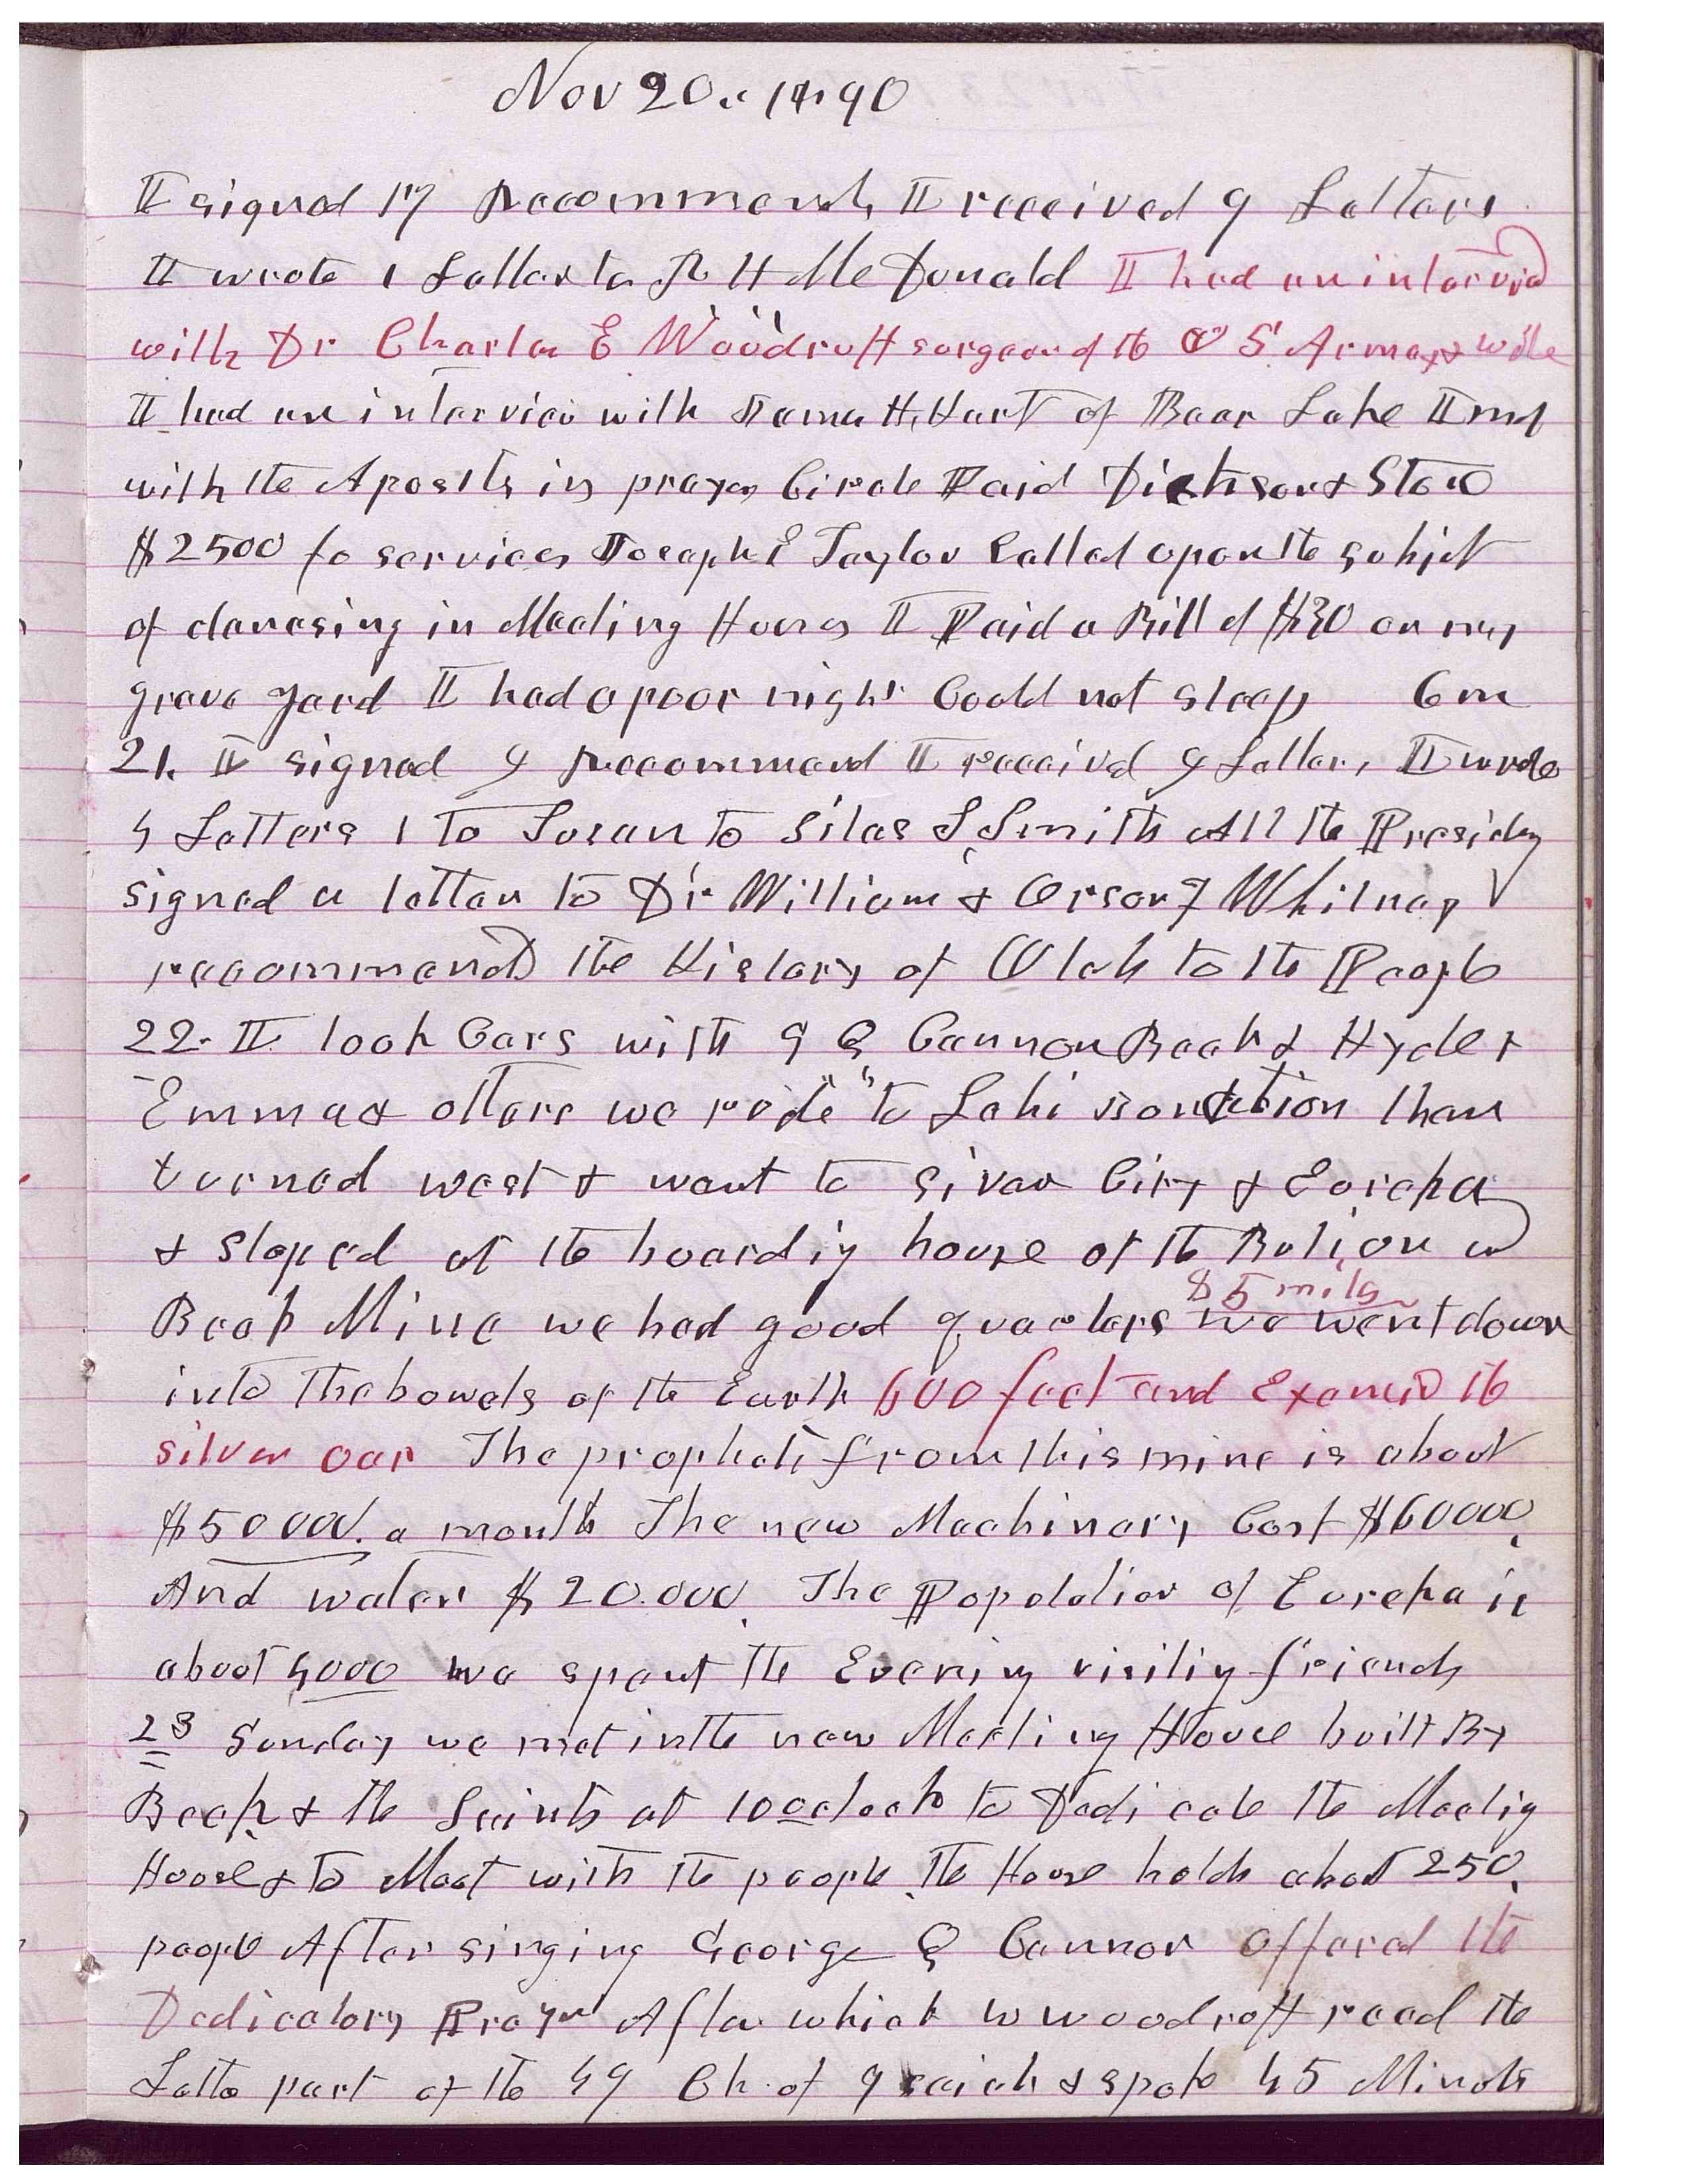 Nov 20.. 1890
I signed 17 Recommends I received 9 Letters
I wrote 1 Letter to R H McDonald I had an intervi
with Dr Charles E Woodruff surgeon of the U S Army & wife
I had an interviev with James H. Hart of Bear Lake I met
with the Apostls in prayer Circle Paid Dickson & Stow
$2500 fo services Joseph E Taylor Called upon the subjet
of dancing in Meeting Houses I Paid a Bill of $30 on my
grave yard I had a poor night Could not sleep 6 m
21. I signed 4 Recommend I received 4 Letters I wrote
4 Letters 1 to Susan to Silas S Smith All the Presidey
signed a letter to Dr William & Orson F Whitney
recommend the History of Utah to the People
22. I took Cars with G Q Cannon Beck & Hyde &
Emma & others we rode to Lehi Jonction then
turned west & went to Sivar City & Eureka
& stoped at the boardig house of the Bulion
85 miles
Beck Mine we had good quarters we went down
into the bowels of the Earth 600 feet and Examid the
silver oar The prophets from this mine is about
$50000. a month The new Machinery Cost $60000.
And water $20.000. The Population of Eureka is
about 4000 we spent the Evening visitig friends
23 Sunday we met in the new Meeting House built By
Beck & the Saints at 10 oclock to Dedicate the Meetig
House & to Meet with the people. The House holds about 250.
people After singing George Q Cannon offered the
Dedicatory Prayer After which W Woodruff read the
Latte part of the 49 Ch. of Isaiah & spoke 45 Minuts